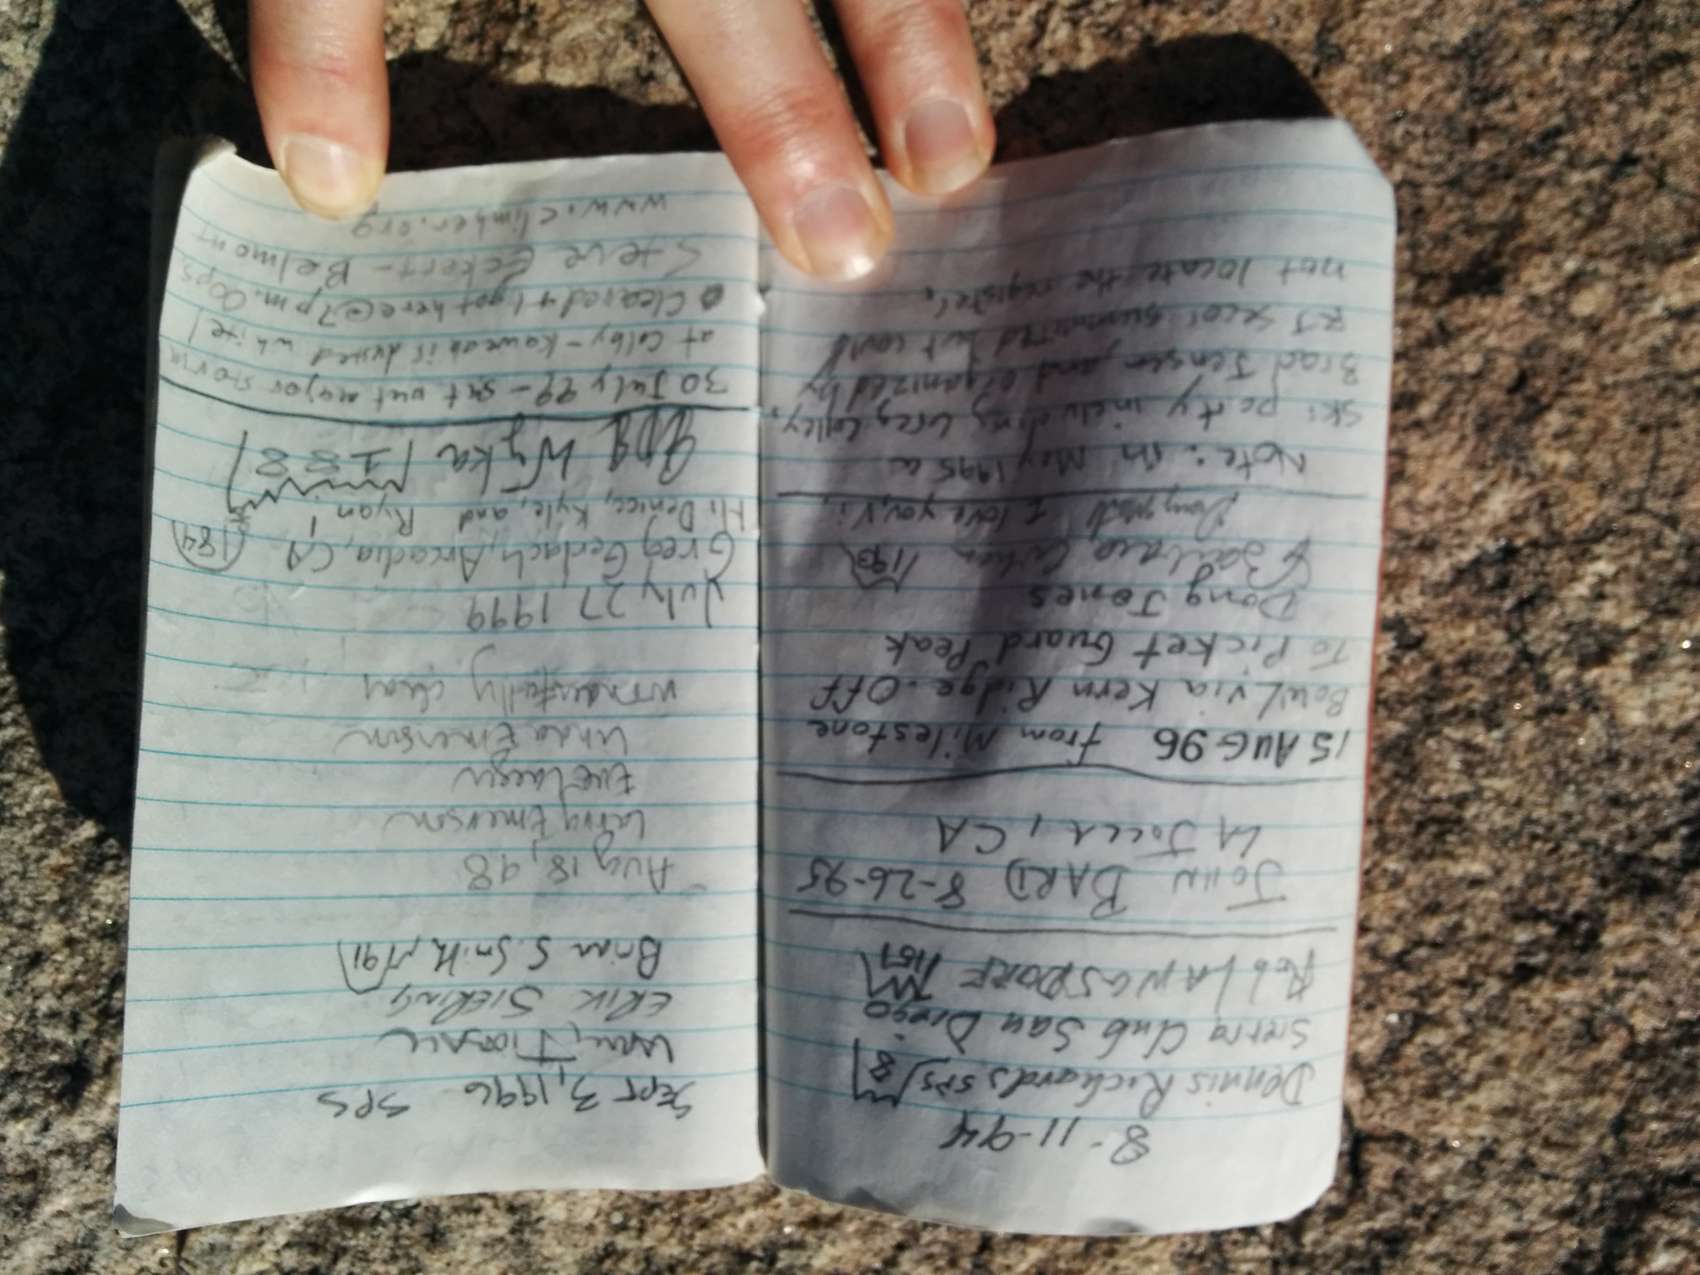 8-11-94
Dennis Richards SPS 8
Sierra Club San Diego
Rob LANGSDORF 1157
JOHN BARD 8-26-95
LA JOLLA, CA
15 AUG 96 from Milestone
Bowl via Kern Ridge. Off
To Picket Guard Peak
Doug Jones
& Barbara Cohen 1193
I love you, Vi,
Note: in May 1995 a
ski party including Greg Coley,
Brad Jensen and organized by
RJ Secor summitted but could
not locate the register.
SEPT 3, 1996 SPS
ERIK SIERING
Brian S. Smith 91
Aug 18, 98
Larry Emerson
Linda Emerson
wonderfully clear
July 27 1999
Greg Gerlach, Arcadia, CA 184
Hi Denice, Kyle, and Ryan!
Wyka 188
30 July 99 - sat out major storm
at Colby - Kaweah is dusted white!
Cleared & I got here @ 7pm. Oops.
Steve Eckert - Belmont
www.climber.org